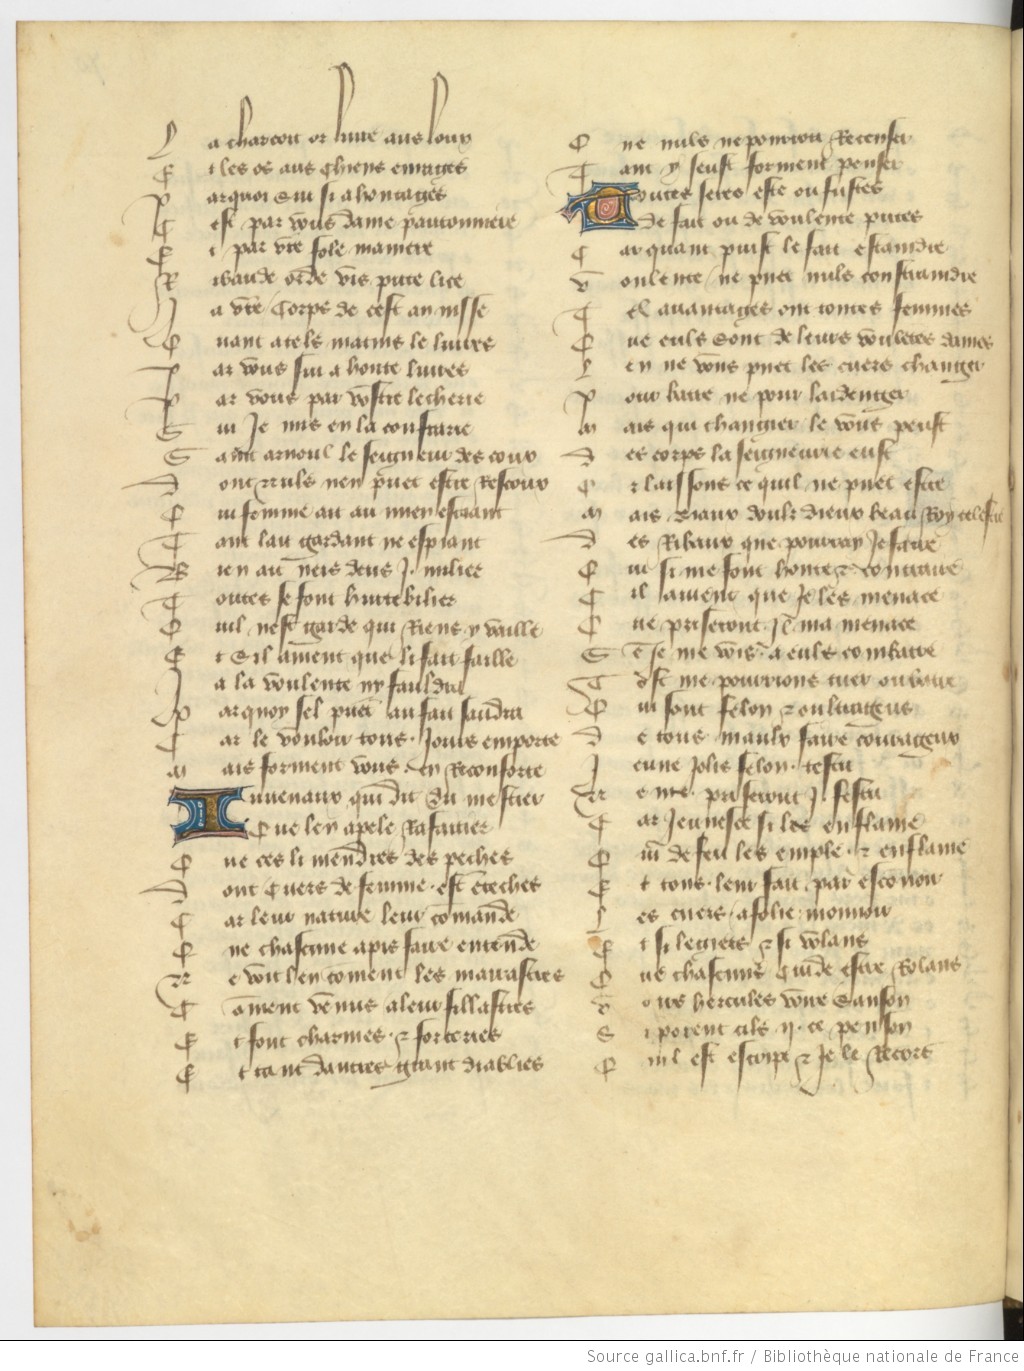 L a charoin or livre aus loux
E t les os aus chiens enrages
P ar quoi sui si ahontages
C est par vous dame pautonniere
E t par vre fole maniere
R ibaude orde vis pute lice
J a vre corps de cest an nisse
Q uant a tels matins le livres
P ar vous sui a honte livres
P ar vous par vostre lecherie
S ui Je mis en la confrarie
S aint arnoul le seigneur des coux
D ont nuls nen puet estre Rescoux
Q ui femme ait au mien esciant
T ant lait gardant ne espiant
B ien ait neis deus .J. milier
T outes se font hurtebilier
Q uil nest garde qui Riens y vaille
E t Sil avient que li fait faille
J a la voulente ny fauldra
P ar quoy sel puet au fait saudra
C ar le vouloir tous Jours emporte
M ais forment vous en Reconforte
Juvenaux qui dit du mestier
Que len apele Rafaitier
Q ue ces li mendres des peches
D ont Cuers de femme est teches
C ar leur nature leur comande
Q ne chascune a pis faire entende
N e voit len coment les marrastres
C avment venus a leur fillastres
E t font charmes & sorceries
E t tant dautres grant diablies
Q ne nuls ne pourroit Recenser
T ant y seust forment penser
Toutes seres este ou fustes
De fait ou de voulente putes
C ar quant puist le fait estaindre
V oulente ne puet nuls constraindre
T el avantages ont toutes femmes
Q ue euls sont de leurs voulentes dames
L en ne vous puet les cuers changer
P our batre ne pour laidenger
M ais qui changier le vous peust
D es corps la seigneurie eust
O r laissons ce quil ne puet estre
M ais biaux doulz dieux beau Roy celestre
D es Ribaux que pourray Je faire
Q ui si me font honte & contraire
S il avient que Je les menace
Q ue priseront Jl ma menace
S e Je me vois a euls combatre
T ost me pourrions tuer ou batre
Q ui sont felon & oultrageus
D e tous maulx faire courageux
J eune Jolis felon testu
N e me priseront .J. festu
C ar Jeunesce si les enflame
Q ui de feu les emple & enflame
E t tous leur fait par esconvoir
L es cuers a folie mouvoir
E t si legiers & si volans
Q ue chascuns Cuide estre Rolans
V oire hercules voire Sanson
S i porent cils .ij. ce penson
Q uil est escript & Je le Recort